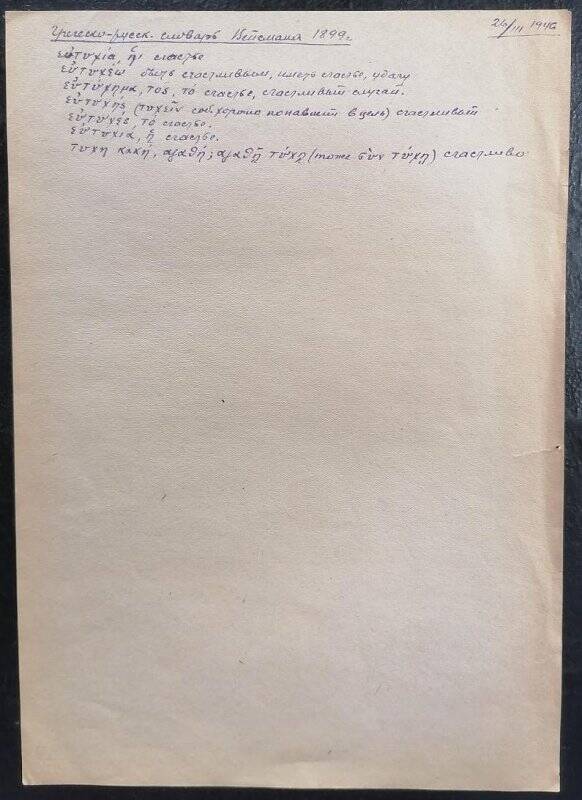 Греческо-русск. словарь Вейсмана 1899г. 26/III 1946
εὐτυχία, ἡ: счастье
εὐτυχέω быть счастливым, иметь счастье, удачу
εὐτύχημα, τος, τό счастье, счастливый случай.
εὐτυχής (τυχεῖν собхорошо попавший в цель) счастливый
εὐτυχές τό счастье.
εὐτυχία, ἡ счастье.
τύχη κακή, αγαθή; αγαθῇ τύχῃ (тоже σὺν τύχῃ) счастливо